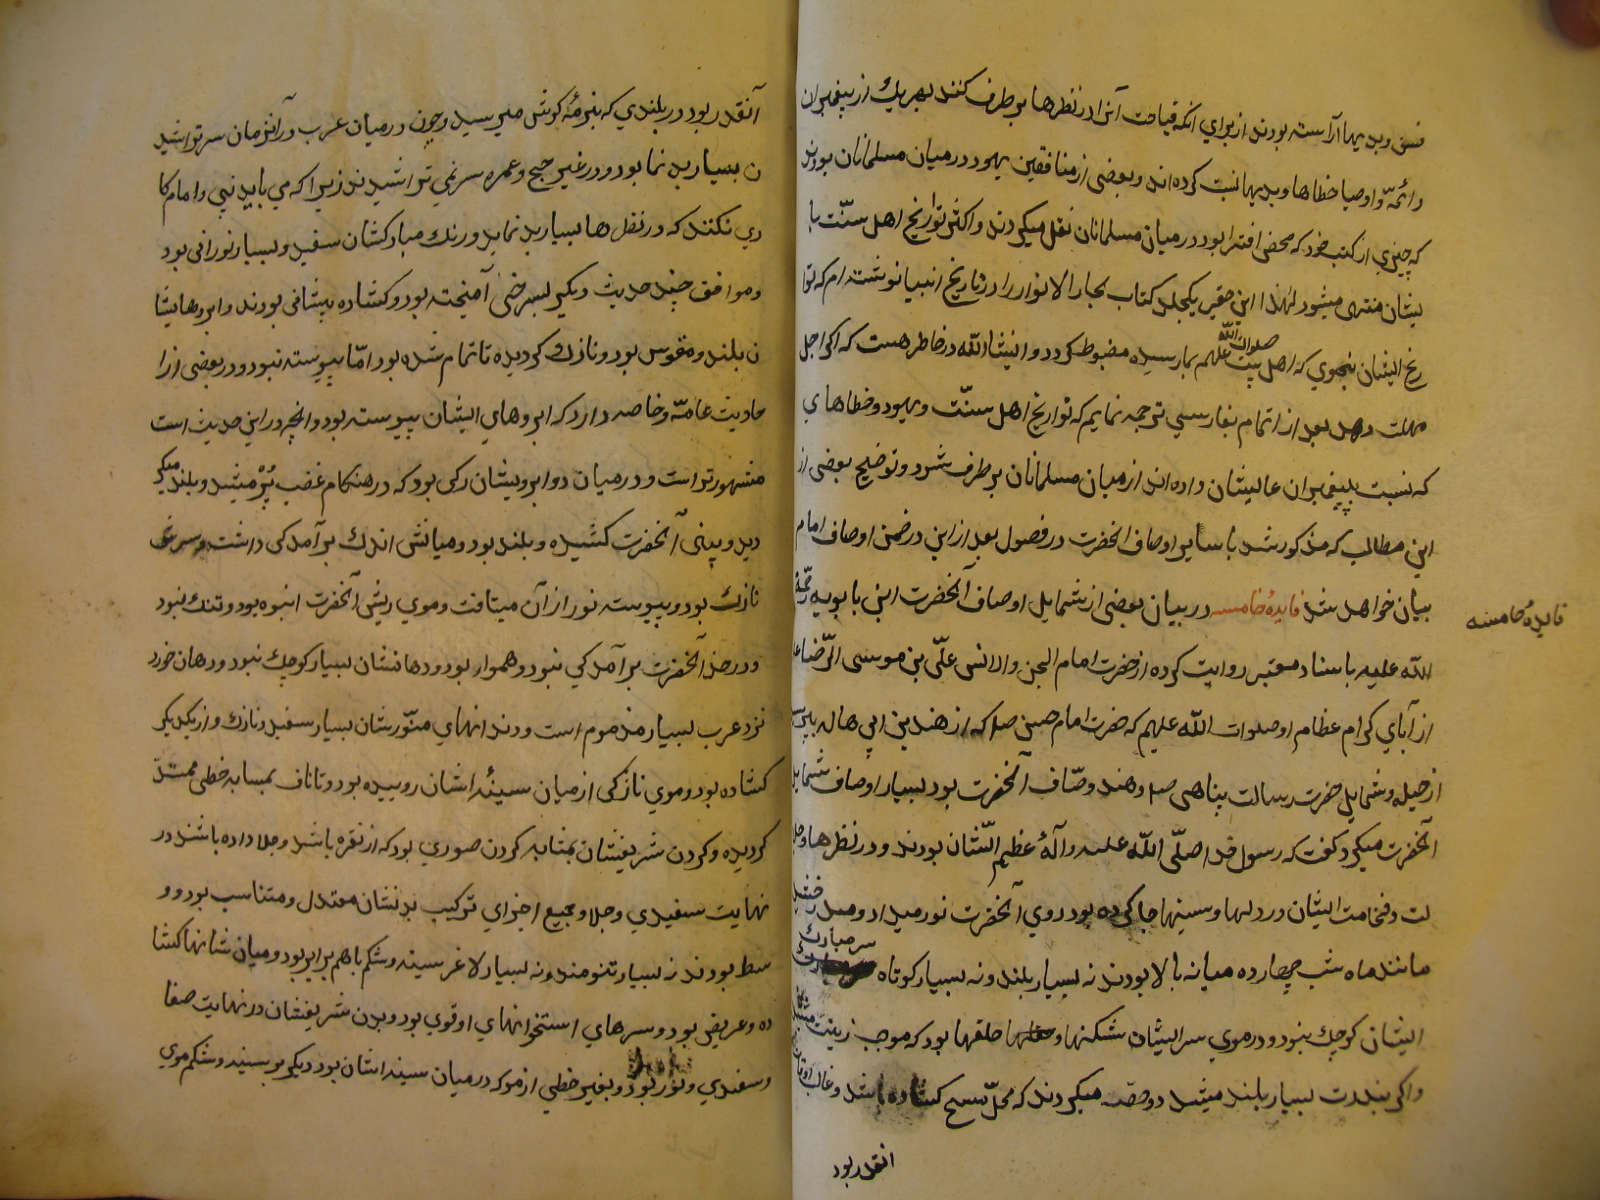 فسق و بدیها آراسته بودند از برای آنکه قباحت آنرا در نظرها بر طرف کنند بهر یك از پیغمبران
و ائمّه و اوصیا خطاها و بدیها نسبت کرده‌اند و بعضی از منافقین یهود در میان مسلمانان بودند
که چیزی از کتب خود که محض افترا بود در میان مسلمانان نقل میکردند و اکثر تواریخ اهل سنّت با
یشان منتهی میشود لهٰذا این حقیر یکجلد کتاب بحار الانوار را در تاریخ انبیا نوشته‌ام که توا
ریخ ایشان بنحوی که اهل بیت صلوات الله علیهم بما رسیده مضبوط کردد و انشاءالله در خاطر هست که اکر اجل
مهلت دهد بعد از اتمام بفارسی ترجمه نمایم که تواریخ اهل سنّت و یهود و خطاهای
که نسبت بپیغمبران عالیشان داده‌اند از میان مسلمانان بر طرف شود و توضیح بعضی از
این مطالب که مذکور شد با سایر اوصاف انحضرت در فصول بعد از این در ضمن اوصاف امام
بیان خواهد شد فایدۀ خامسه در بیان بعضی از شمایل و اوصاف آنحضرت ابن بابویه رحمة
فایدۀ خامسه
الله علیه باسناد معتبر روایت کرده از حضرت امام الجن و الانس علّی بن موسی الرّضا ع
از آبای کرام عظام او صلوات الله علیهم که حضرت امام حسن ص که از هند بن ابی هاله پرسید
از حیله و شمایل حضرت رسالت پناهی ص و هند وصّاف آنحضرت بود بسیار اوصاف شمایل
آنحضرت میکرد کفت که رسول خدا صلّی الله علیه و آلهٔ عظیم الشّان بودند و در نظرها و جلا
لت و فخامت ایشان در دلها و سینها جا کرده بود روی آنحضرت نور میداد و میدرخشید
مانند ماه شب چهارده میانه بالا بودند نه بسیار بلند و نه بسیار کوتاه سر مبارك
ایشان کوچك نبود و در موی سر ایشان شکنها و حلقها بود که موجب زینت
و اکر بندرت بسیار بلند میشد دو حصّه میکردند که محلّ مسح کشاده باشد و غالب اوقات
انقدر بود
آنقدر بود در بلندی که بنرمهٔ کوش میرسید و چون در میان عرب در آنزمان سر تراشید
ن بسیار بد نما بود و در غیر حج و عمره سر نمی تراشیدند زیرا که می باید نبی و امام کا
ری نکنند که در نظرها بسیار بد نماید و رنك مبارکشان سفید و بسیار نورانی بود
و موافق چند حدیث دیکر بسرخی آمیخته بود و کشاده پیشانی بودند و ابروهایشا
ن بلند و مقوس بود و نازك کردیده تا تمام شده بود امّا پیوسته نبود و در بعضی از ا
حادیث عامّه و خاصه دارد که ابروهای ایشان پیوسته بود و انچه در این حدیث است
مشهورتر است و در میان دو ابرویشان رکی بود که در هنکام غضب پُرْ میشد و بلند میکر
دید و بینی آنحضرت کشیده و بلند بود و میانش اندك بر آمدکی داشت و سرش
نازك بود و پیوسته نور از آن میتافت و موی ریش آنحضرت انبوه بود و تنك نبود
و در خد آنحضرت بر آمدکی نبود و هموار بود و دهانشان بسیار کوچك نبود و دهان خورد
نزد عرب بسیار مذموم است و دندانهای منّورشان بسیار سفید و نازك و از یکدیکر
کشاده بود و موی نازکی از میان سینهٔ اشان روییده بود و تا ناف بمسابه خطی ممتدّ
کردیده و کردن شریفشان بمثابه کردن صوری بود که از نقره باشد و جلا داده باشند در
نهایت سفیدی و جلا و جمیع اجزای ترکیب بدنشان معتدل و متناسب بود و و
سط بودند نه بسیار تنومند و نه بسیار لاغر سینه و شکم باهم برابر بود و میان شانها کشا
ده و عریض بود و سرهای استخوانهای او قوی بود و بدن شریفشان در نهایت صفا
و سفیدی و نور بود و بغیر خطی از مو که در میان سینه اشان بود دیکر بر سینه و شکم موی